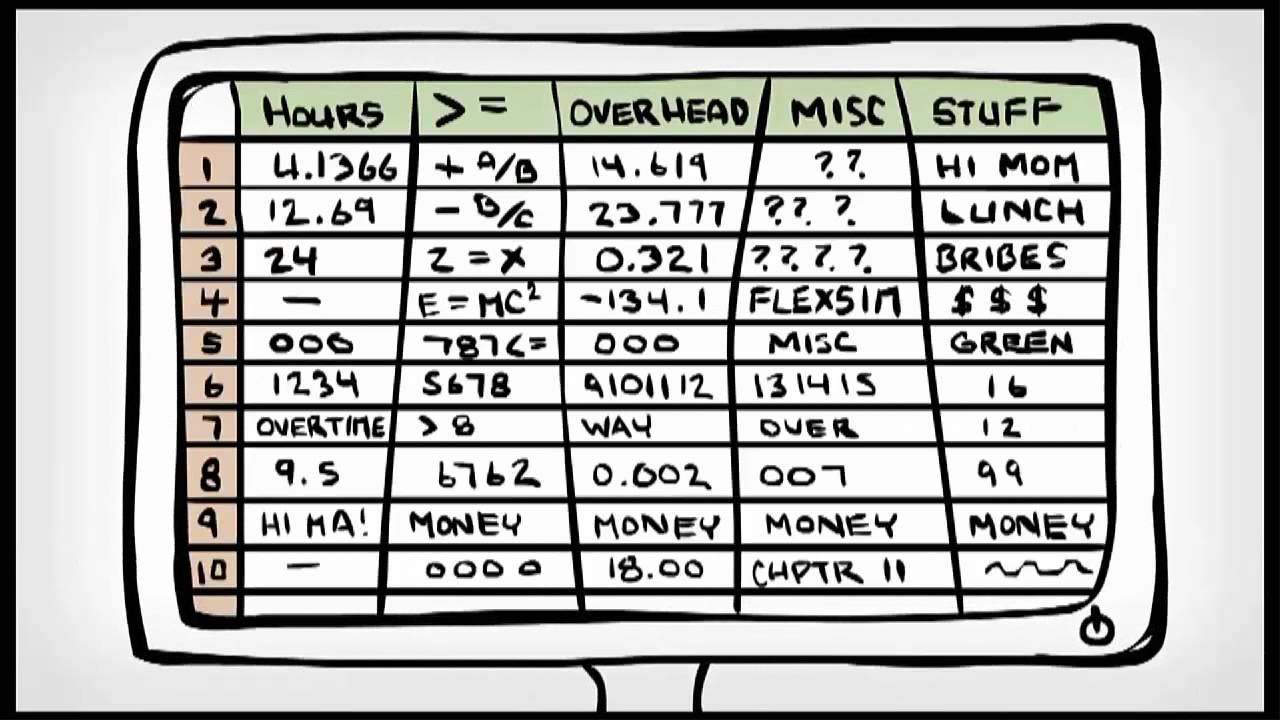 HOURS >= OVERHEAD MISC STUFF
1 4.1366 + A/B 14.619 ?? HI MOM
2 12.69 - B/C 23.777 ?? ? LUNCH
3 24 Z = X 0.321 ?? ? ? BRIBES
4 — E = MC² -134.1 FLEXSIM $ $ $
5 000 787<= 000 MISC GREEN
6 1234 5678 9101112 131415 16
7 OVERTIME > 8 WAY OVER 12
8 9.5 6762 0.002 007 99
9 HI MA! MONEY MONEY MONEY MONEY
10 — 0000 18.00 CHPTR 11